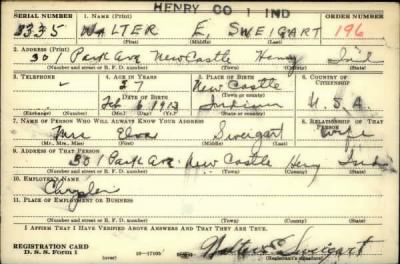 HENRY CO 1 IND
SERIAL NUMBER 1. NAME (Print) ORDER NUMBER
3335 WALTER E. SWEIGART 196
(First) (Middle) (Last)
2. ADDRESS (Print)
301 Park Ave New Castle Henry Ind
(Number and street or R. F. D. number) (Town) (County) (State)
3. TELEPHONE 4. AGE IN YEARS 5. PLACE OF BIRTH 6. COUNTRY OF CITIZENSHIP
New Castle
(Town or county)
DATE OF BIRTH
Feb 6 1913 Indiana U.S.A.
(Exchange) (Number) (Mo.) (Day) (Yr.) (State or country)
7. NAME OF PERSON WHO WILL ALWAYS KNOW YOUR ADDRESS 8. RELATIONSHIP OF THAT PERSON
Mrs Sweigart Wife
(Mr., Mrs., Miss) (First) (Middle) (Last)
9. ADDRESS OF THAT PERSON
301 Park Ave. New Castle Henry Ind
(Number and street or R. F. D. number) (Town) (County) (State)
10. EMPLOYER'S NAME
Chrysler
11. PLACE OF EMPLOYMENT OR BUSINESS
(Number and street or R. F. D. number) (Town) (County) (State)
I AFFIRM THAT I HAVE VERIFIED ABOVE ANSWERS AND THAT THEY ARE TRUE.
REGISTRATION CARD
D. S. S. Form 1 (over) 16—17105 Walter E Sweigart
(Registrant's signature)